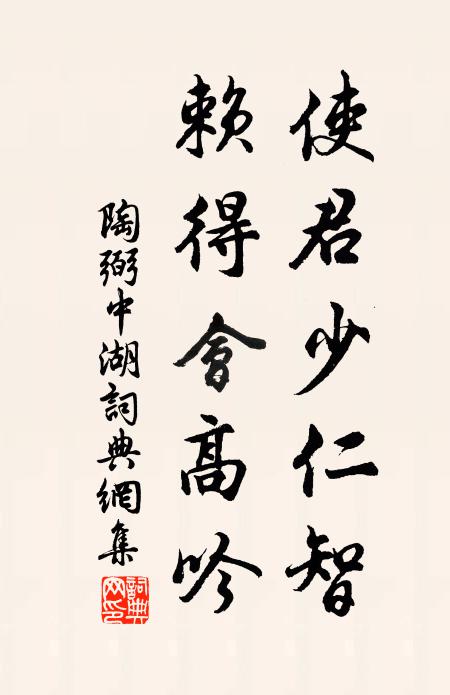 使君少仁智
賴得會高吟
陶弼中湖詞典網集
詞典網印